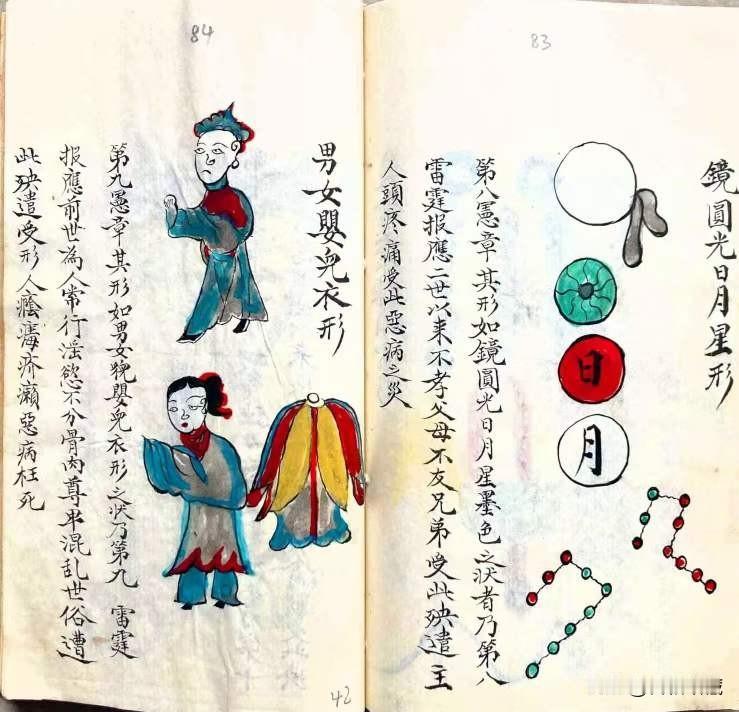 83
鏡圓光日月星形
日
月
第八憲章其形如鏡圓光日月星墨色之状者乃第八
雷霆报應二世以来不孝父母不友兄弟受此殃遣主
人頭疼痛受此惡病之災
84
男女嬰兒衣形
第九憲章其形如男女貌嬰兒衣形之状乃第九 雷霆
报應前世為人常行淫慾不分骨肉尊卑混乱世俗遭
此殃遣受形人癊毒疥癩惡病枉死
42